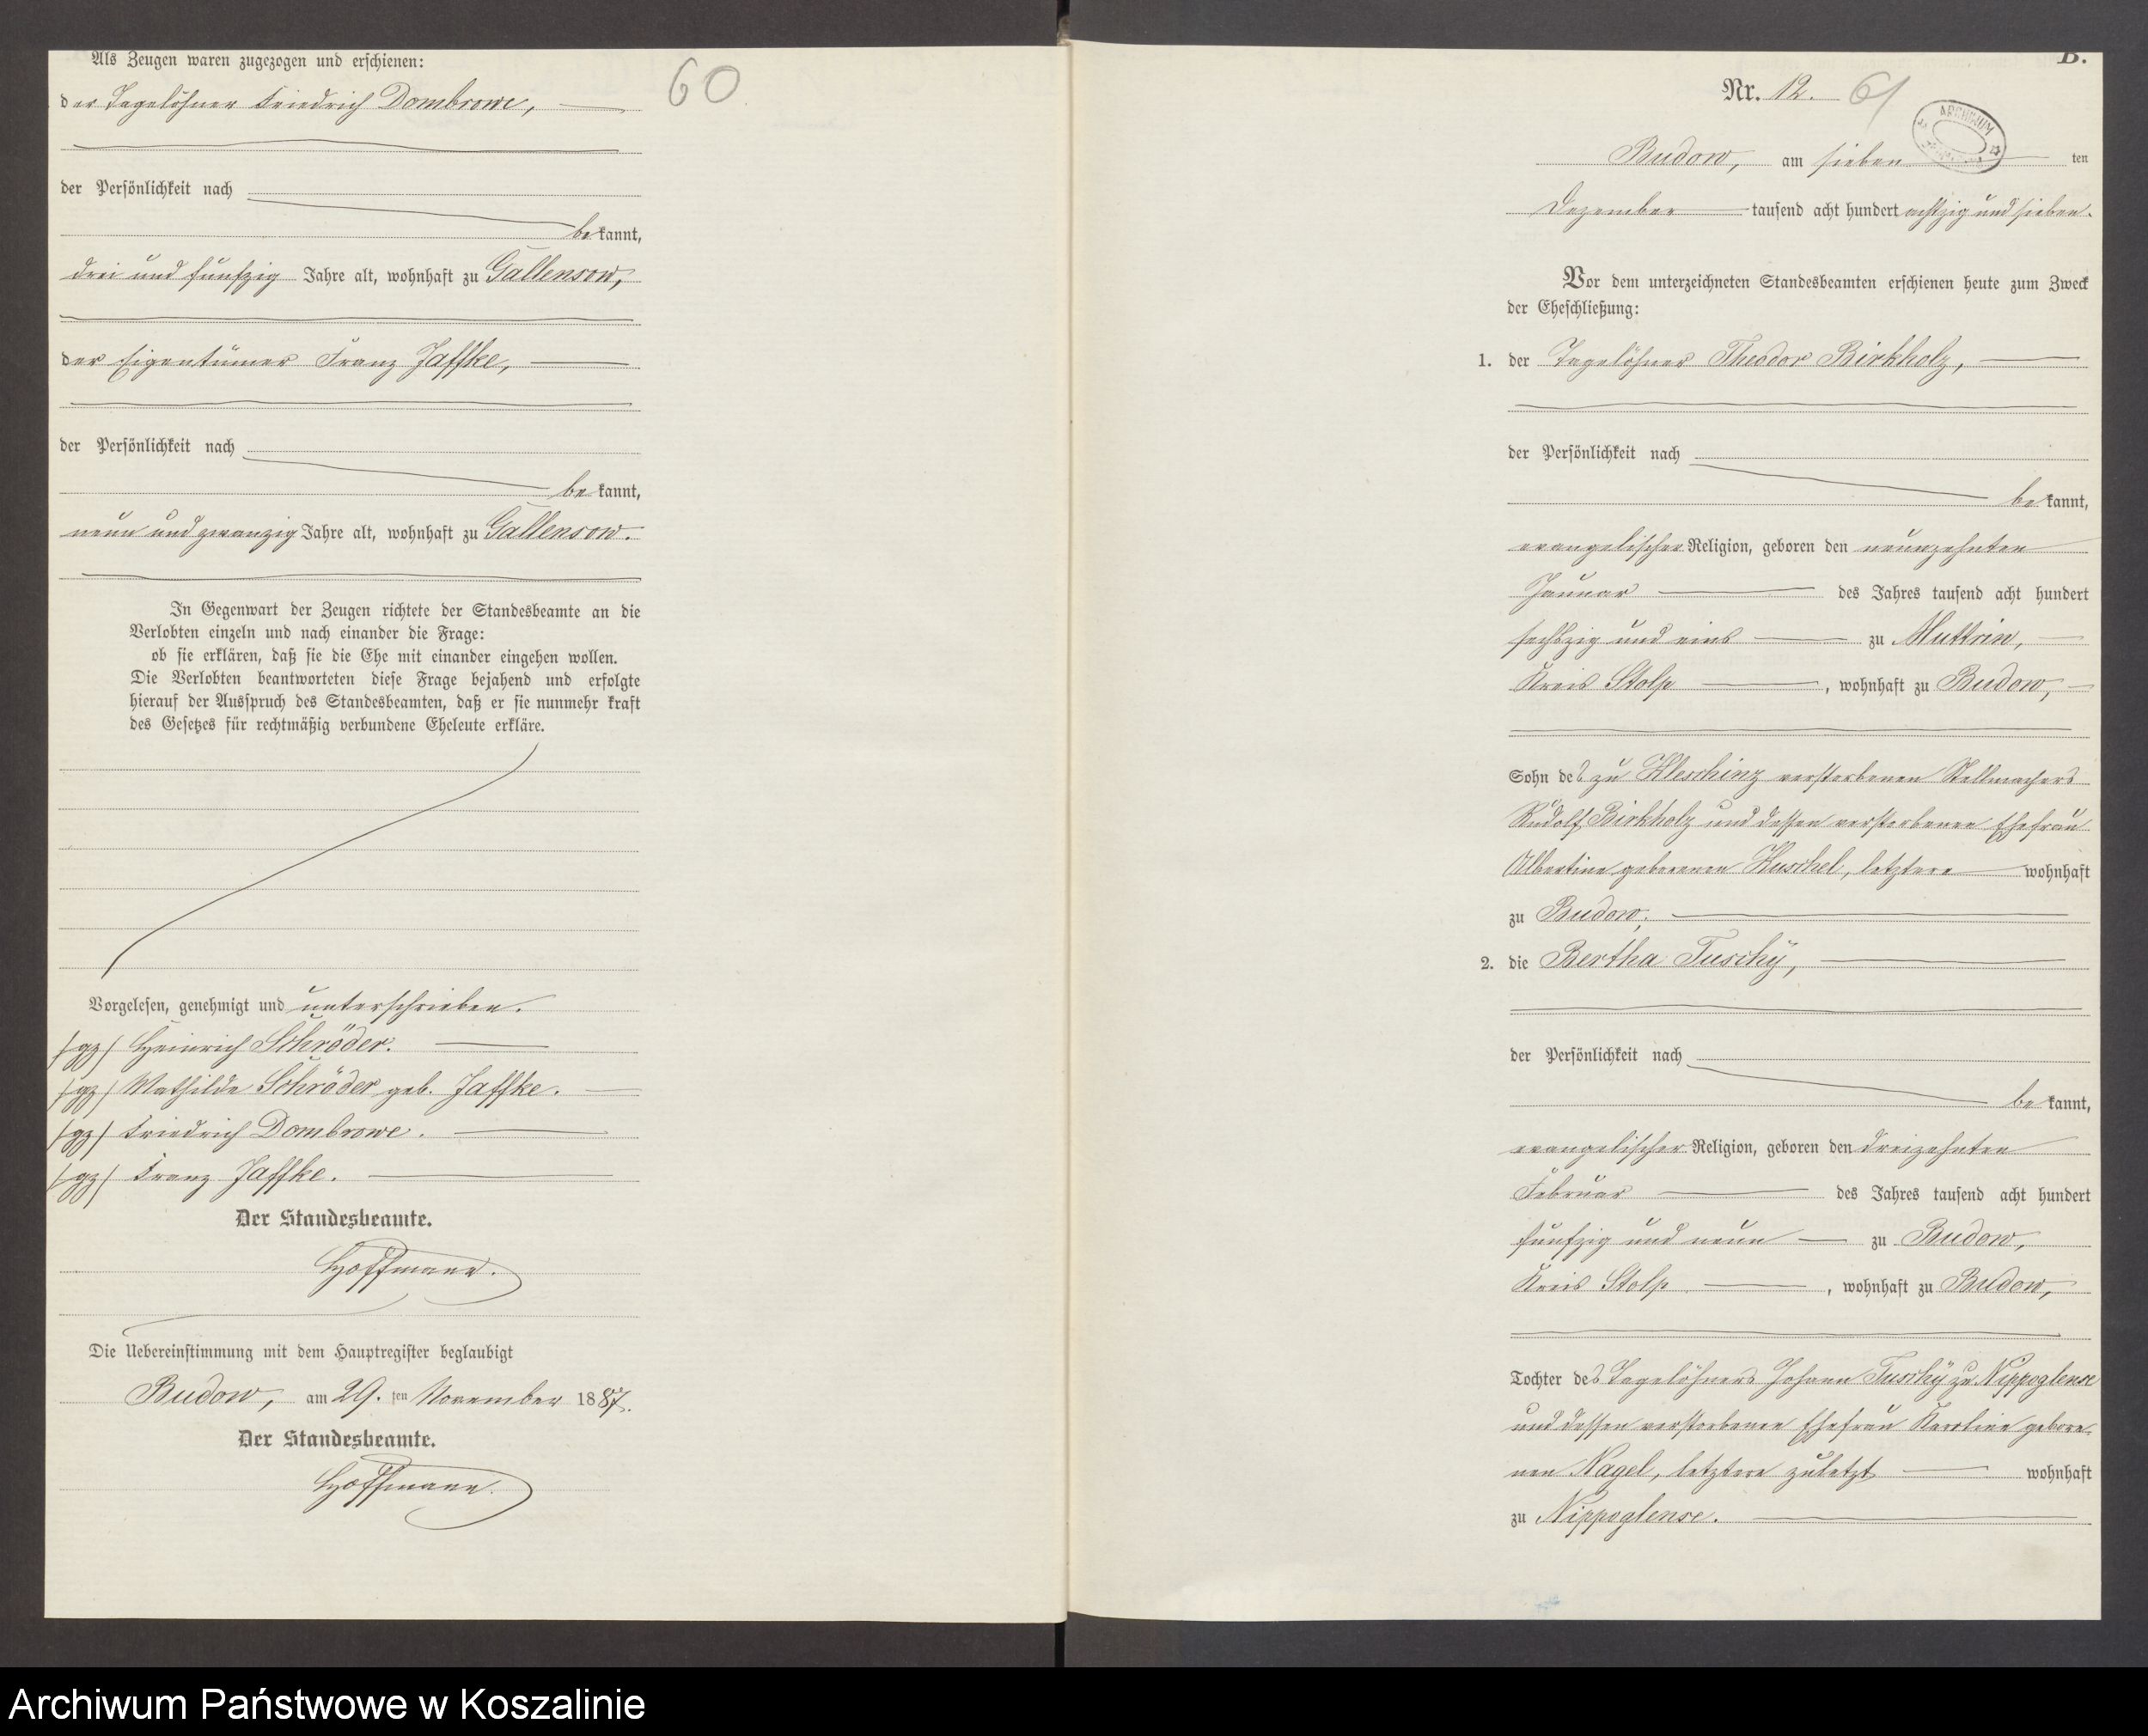 Als Zeugen waren zugezogen und erschienen:
der Tagelöhner Friedrich Dombrowe,
der Persönlichkeit nach
be kannt,
drei und fünfzig Jahre alt, wohnhaft zu Gallensow,
der Eigentümer Franz Jaffke,
der Persönlichkeit nach
be kannt,
neun und zwanzig Jahre alt, wohnhaft zu Gallensow.
In Gegenwart der Zeugen richtete der Standesbeamte an die
Verlobten einzeln und nach einander die Frage:
ob sie erklären, daß sie die Ehe mit einander eingehen wollen.
Die Verlobten beantworteten diese Frage bejahend und erfolgte
hierauf der Ausspruch des Standesbeamten, daß er sie nunmehr kraft
des Gesetzes für rechtmäßig verbundene Eheleute erkläre.
Vorgelesen, genehmigt und unterschrieben.
/gz/ Heinrich Schröder.
/gz/ Mathilde Schröder geb. Jaffke.
/gz/ Friedrich Dombrowe.
/gz/ Franz Jaffke.
Der Standesbeamte.
Hoffmann.
Die Uebereinstimmung mit dem Hauptregister beglaubigt
Budow, am 29. ten November 1887.
Der Standesbeamte.
Hoffmann.
60
B.
Nr. 12. 61
ARCHIWUM
Budow, am sieben ten
Dezember tausend acht hundert achtzig und sieben.
Vor dem unterzeichneten Standesbeamten erschienen heute zum Zweck
der Eheschließung:
1. der Tagelöhner Theodor Birkholz,
der Persönlichkeit nach
be kannt,
evangelischer Religion, geboren den neunzehnten
Januar des Jahres tausend acht hundert
sechszig und eins zu Muttrin,
Kreis Stolp, wohnhaft zu Budow,
Sohn des zu Kleschinz verstorbenen Stellmachers
Rudolf Birkholz und dessen verstorbenen Ehefrau
Albertine geborenen Kuschel, letztere wohnhaft
zu Budow;
2. die Bertha Tuschÿ,
der Persönlichkeit nach
be kannt,
evangelischer Religion, geboren den dreizehnten
Februar des Jahres tausend acht hundert
fünfzig und neun zu Budow,
Kreis Stolp, wohnhaft zu Budow,
Tochter des Tagelöhners Johann Tuschÿ zu Nippoglense
und dessen verstorbenen Ehefrau Karoline gebore-
nen Nagel, letztere zuletzt wohnhaft
zu Nippoglense.
Archiwum Państwowe w Koszalinie